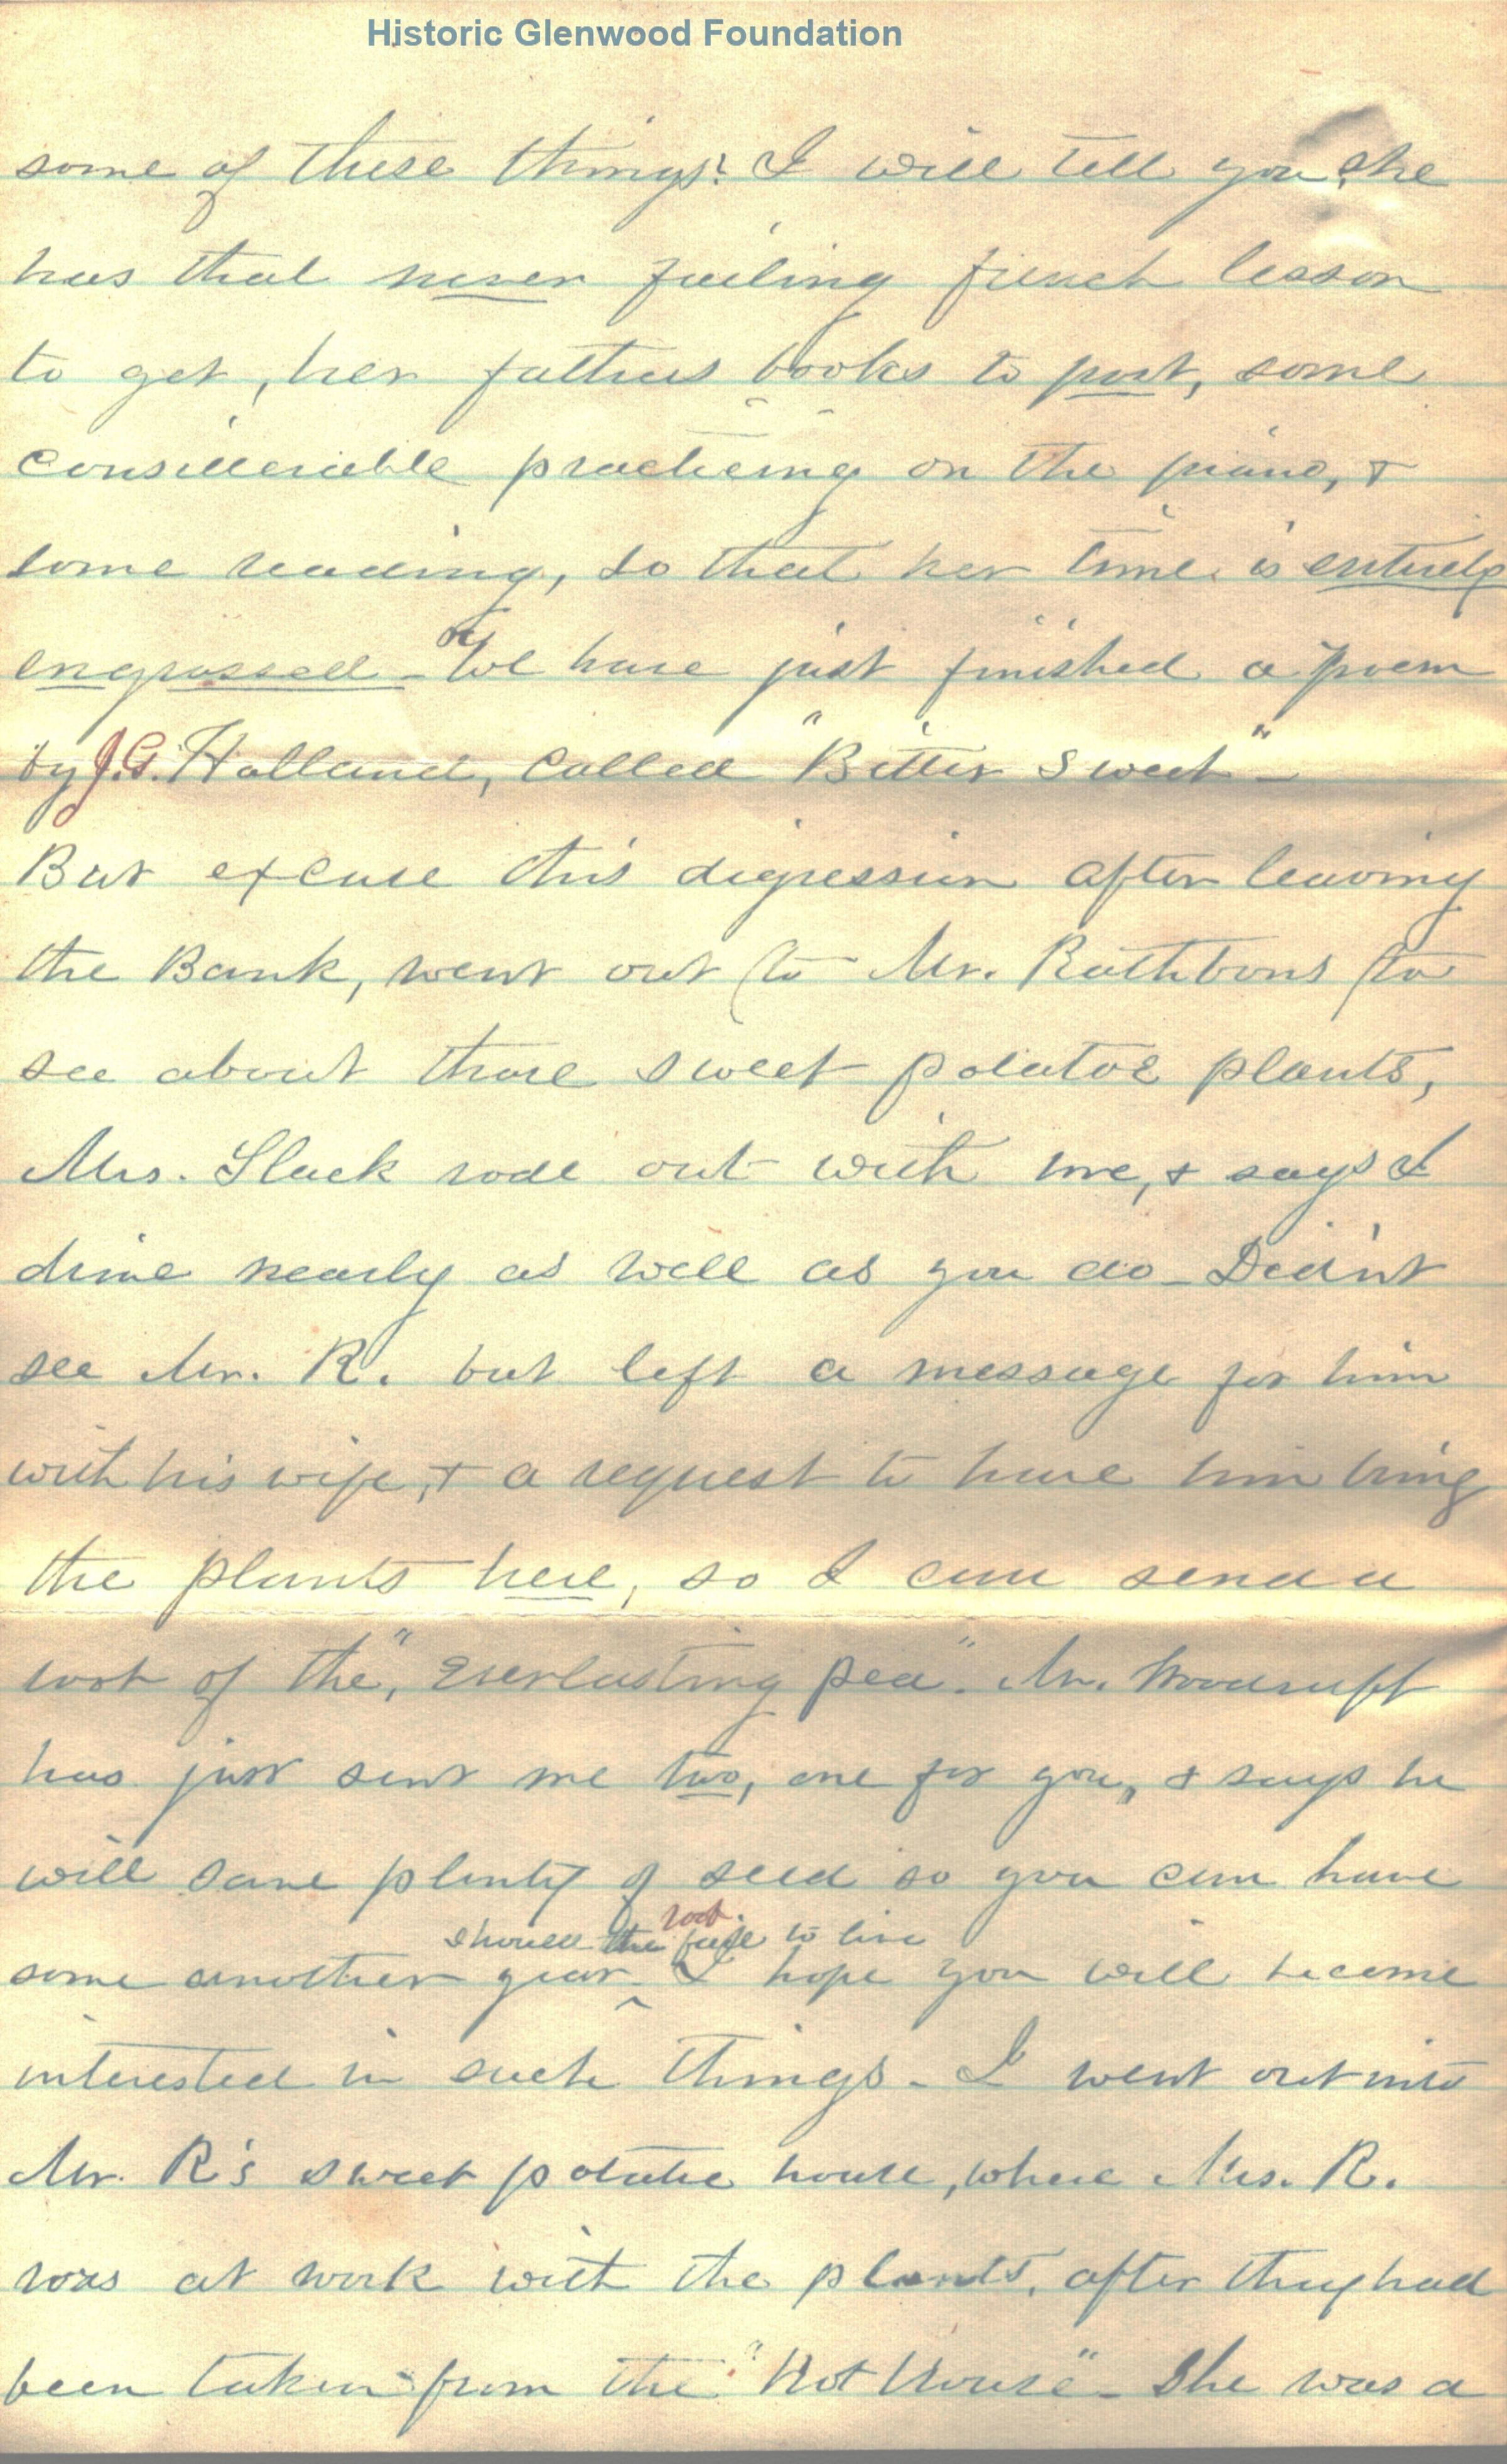 Historic Glenwood Foundation
some of these things? I will tell you, she
has that never failing french lesson
to get, her fathers books to post, some
considerable practicing on the piano, &
some reading, so that her time is entirely
engrossed - We have just finished a poem
by J.G. Holland, called "Bitter Sweet" -
But excuse this digression after leaving
the Bank, went out to Mr. Rathbons to
see about those sweet potatoe plants,
Mrs. Slack rode out with me, & says I
drive nearly as well as you do - Did'nt
see Mr. R. but left a message for him
with his wife, & a request to have him bring
the plants here, so I can send a
root of the, "Everlasting pea". Mr. Woodruff
has just sent me two, one for you, & says he
will save plenty of seed so you can have
should the root fail to live
some another year I hope you will become
interested in such things - I went out into
Mr. R's sweet potatoe house, where Mrs. R.
was at work with the plants, after they had
been taken from the "Hot House" - She was a